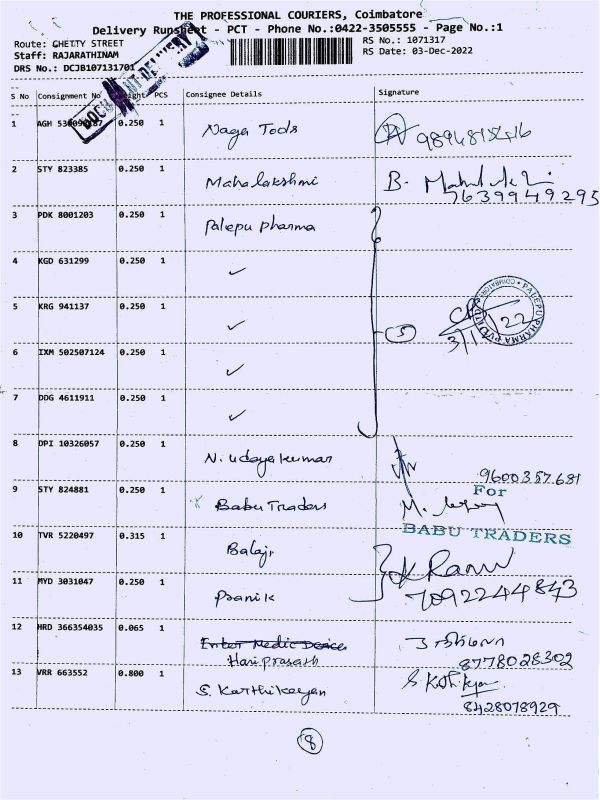 THE PROFESSIONAL COURIERS, Coimbatore
Delivery Runsheet - PCT - Phone No.:0422-3505555 - Page No.:1
Route: CHETTY STREET RS No.: 1071317
Staff: RAJARATHINAM RS Date: 03-Dec-2022
DRS No.: DCJB107131701
DOCUMENT DELIVERY
S No Consignment No Weight PCS Consignee Details Signature
1 AGH 0.250 1 Naga Tods
2 STY 823385 0.250 1 Mahalakshmi B.
7639949295
3 PDK 8001203 0.250 1 Palepu pharma
4 KGD 631299 0.250 1 ✓
5 KRG 941137 0.250 1 ✓ 5
PALEPU PHARMA PVT LTD COIMBATORE
6 IXM 502507124 0.250 1 ✓
7 DDG 4611911 0.250 1 ✓
8 DPI 10326057 0.250 1 N. udayakumar 9600357681
9 STY 824881 0.250 1 Babu Traders For
BABU TRADERS
10 TVR 5220497 0.315 1 Balaji
11 MYD 3031047 0.250 1 Pranik 7092244843
12 HRD 366354035 0.065 1 Enter Medic Device
Hariprasath 8778028302
13 VRR 663552 0.800 1 S. Karthikeyan
8428078929
8